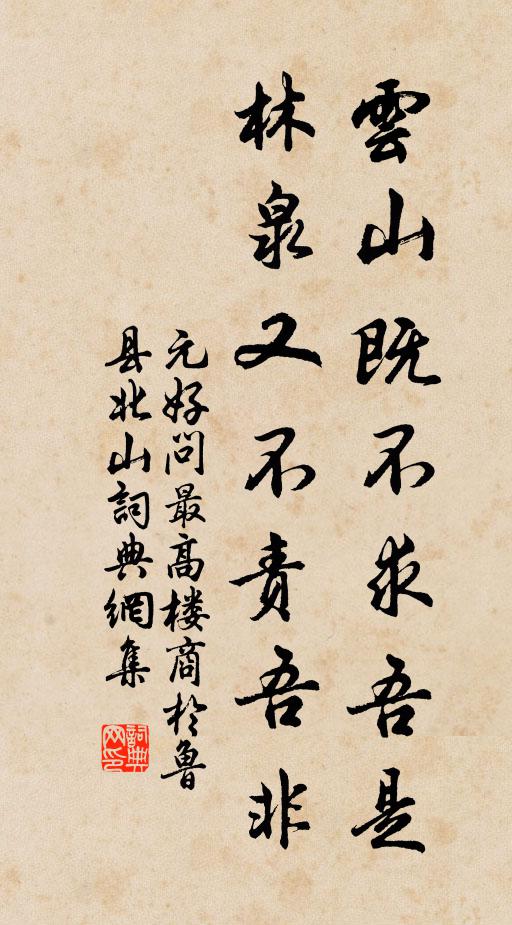 雲山既不求吾是
林泉又不責吾非
元好問最高楼商於魯
县北山詞典網集
詞典网印